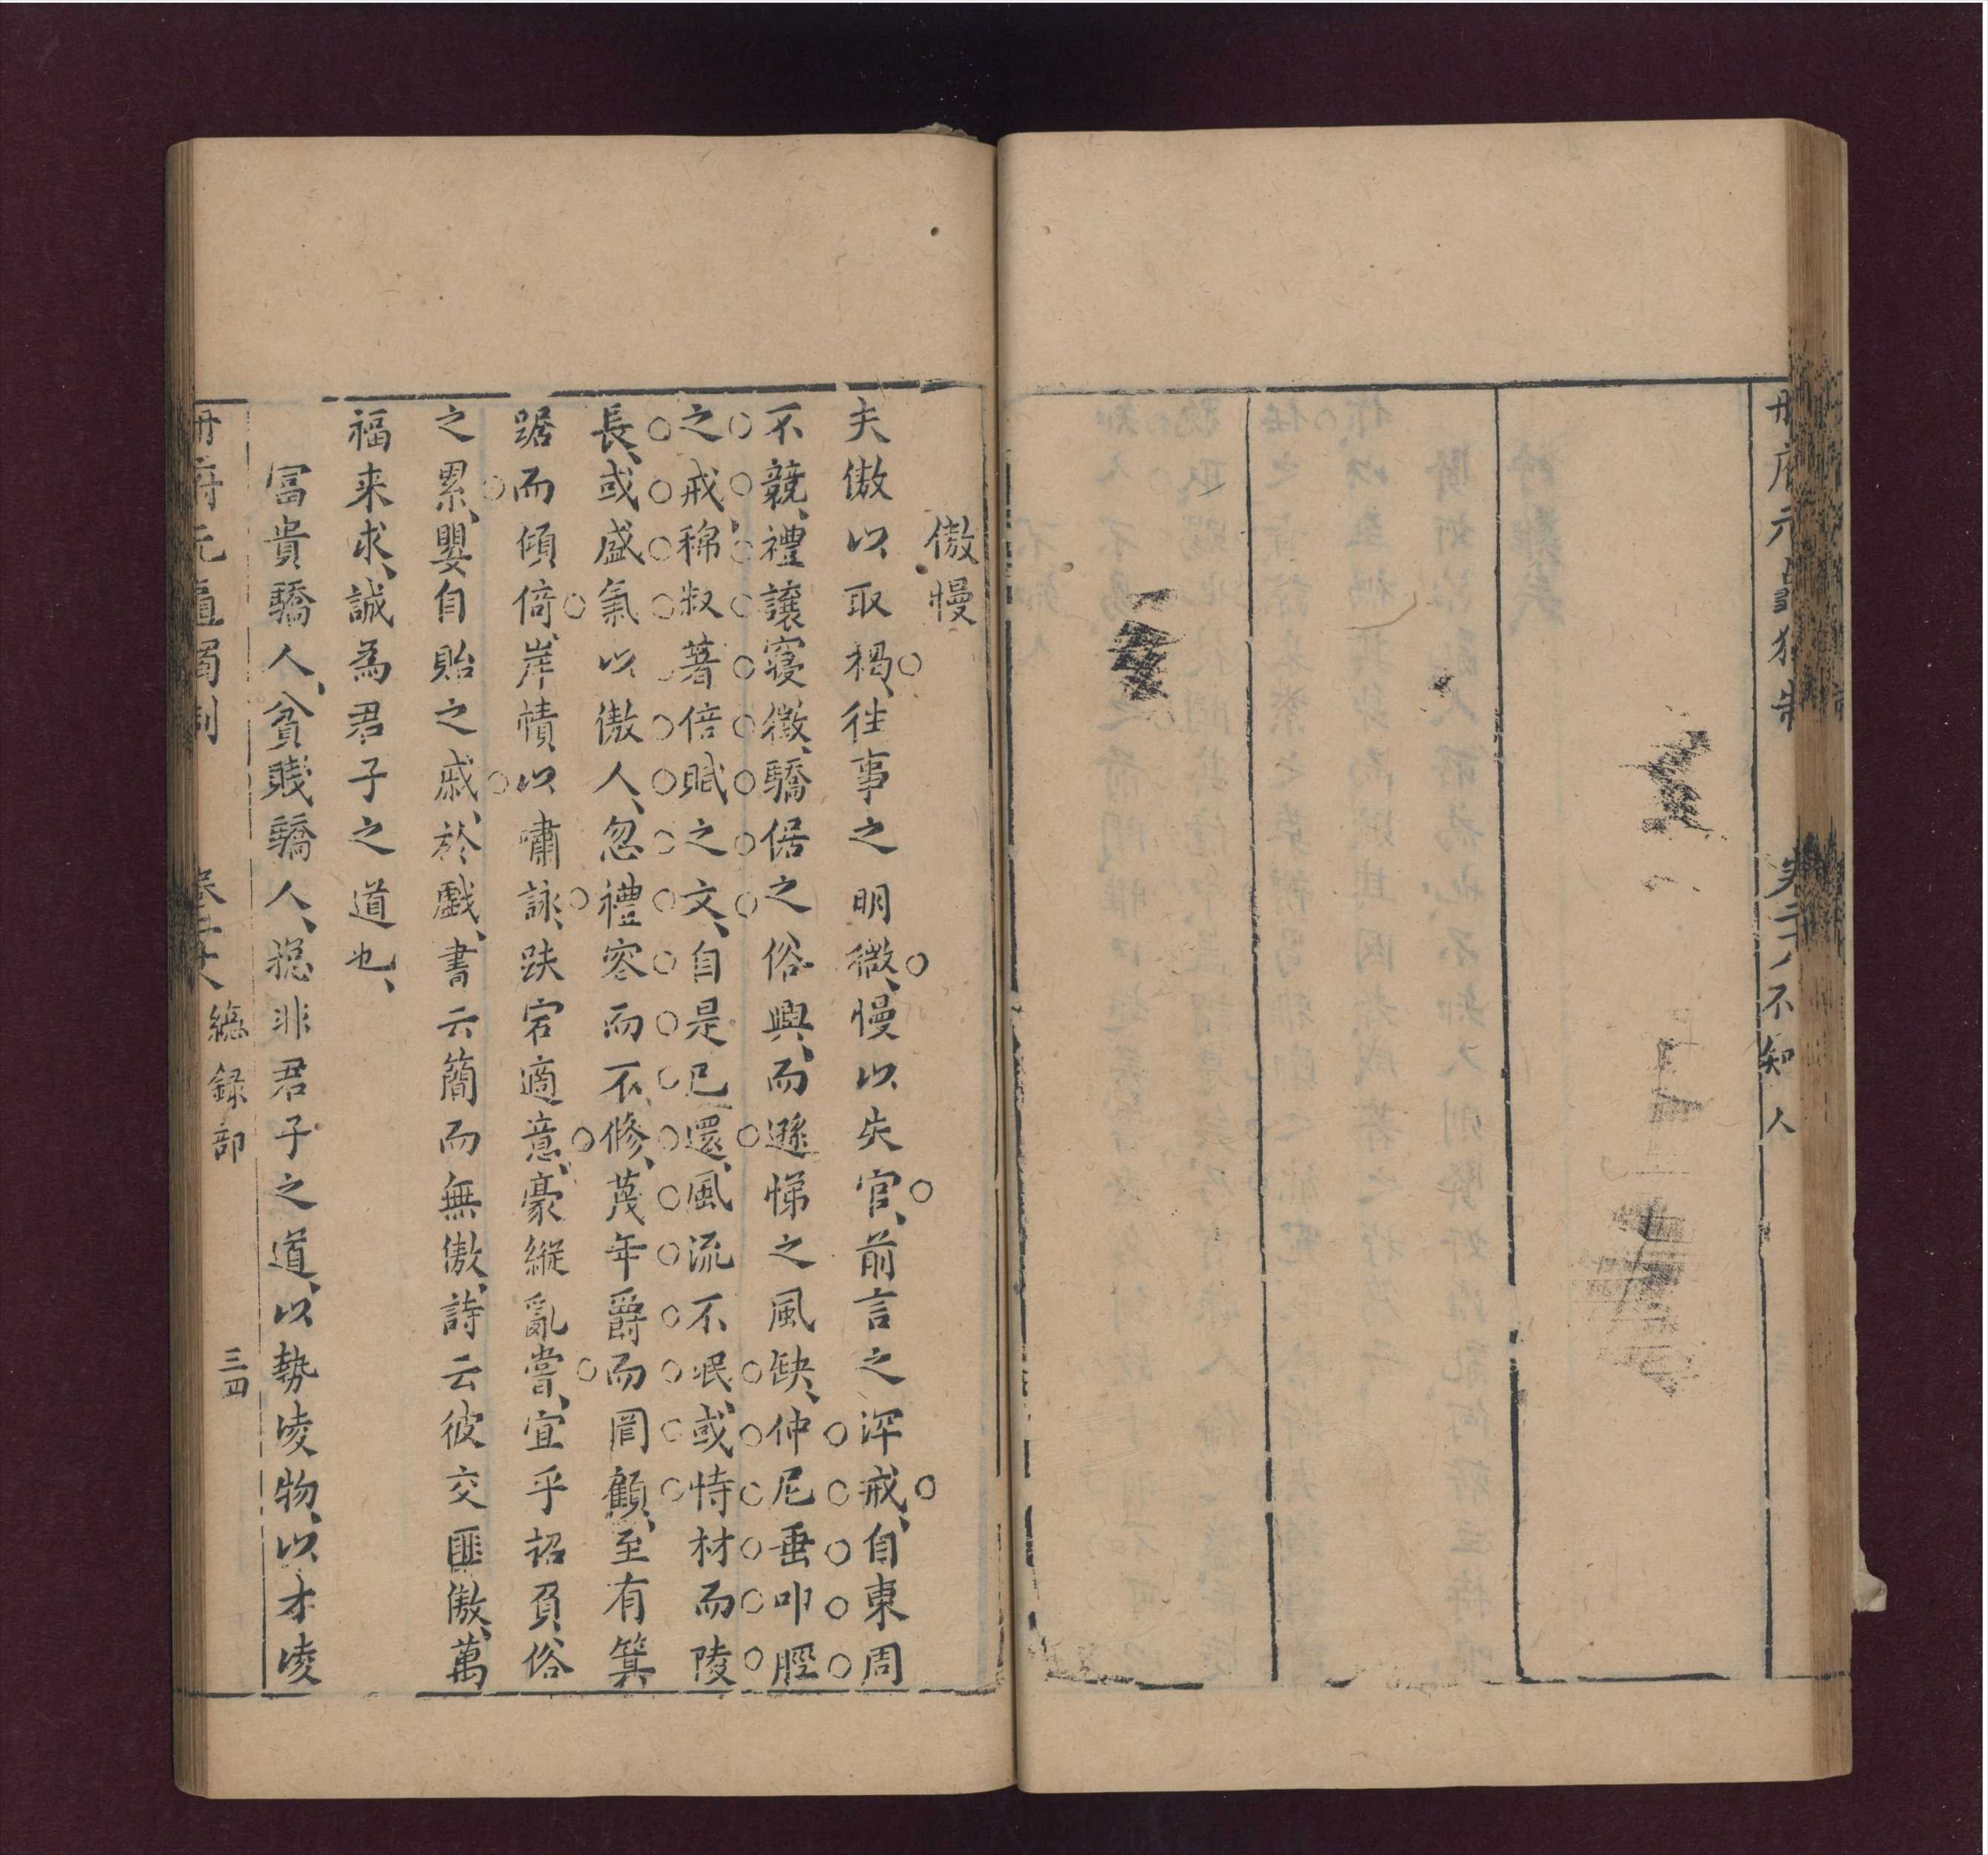 不知人
傲慢
夫傲以取禍、往事之明微、慢以失官、前言之深戒、自東周
不競、禮讓寖微、驕倨之俗興、而遜悌之風缺、仲尼垂叩脛
之戒、稱叔著倍賦之文、自是已還、風流不泯、或恃材而陵
長、或盛氣以傲人、忽禮容而不修、茂年爵而罔顧、至有箕
踞而傾倚、岸幘以嘯詠、趺宕適意、豪縱亂常、宜乎招負俗
之累、嬰自貽之戚、於戲、書云簡而無傲、詩云彼交匪傲、萬
福来求、誠為君子之道也、
冨貴驕人、貧賤驕人、総非君子之道、以勢凌物、以才凌
冊府元龜獨制 卷 總録部 三四